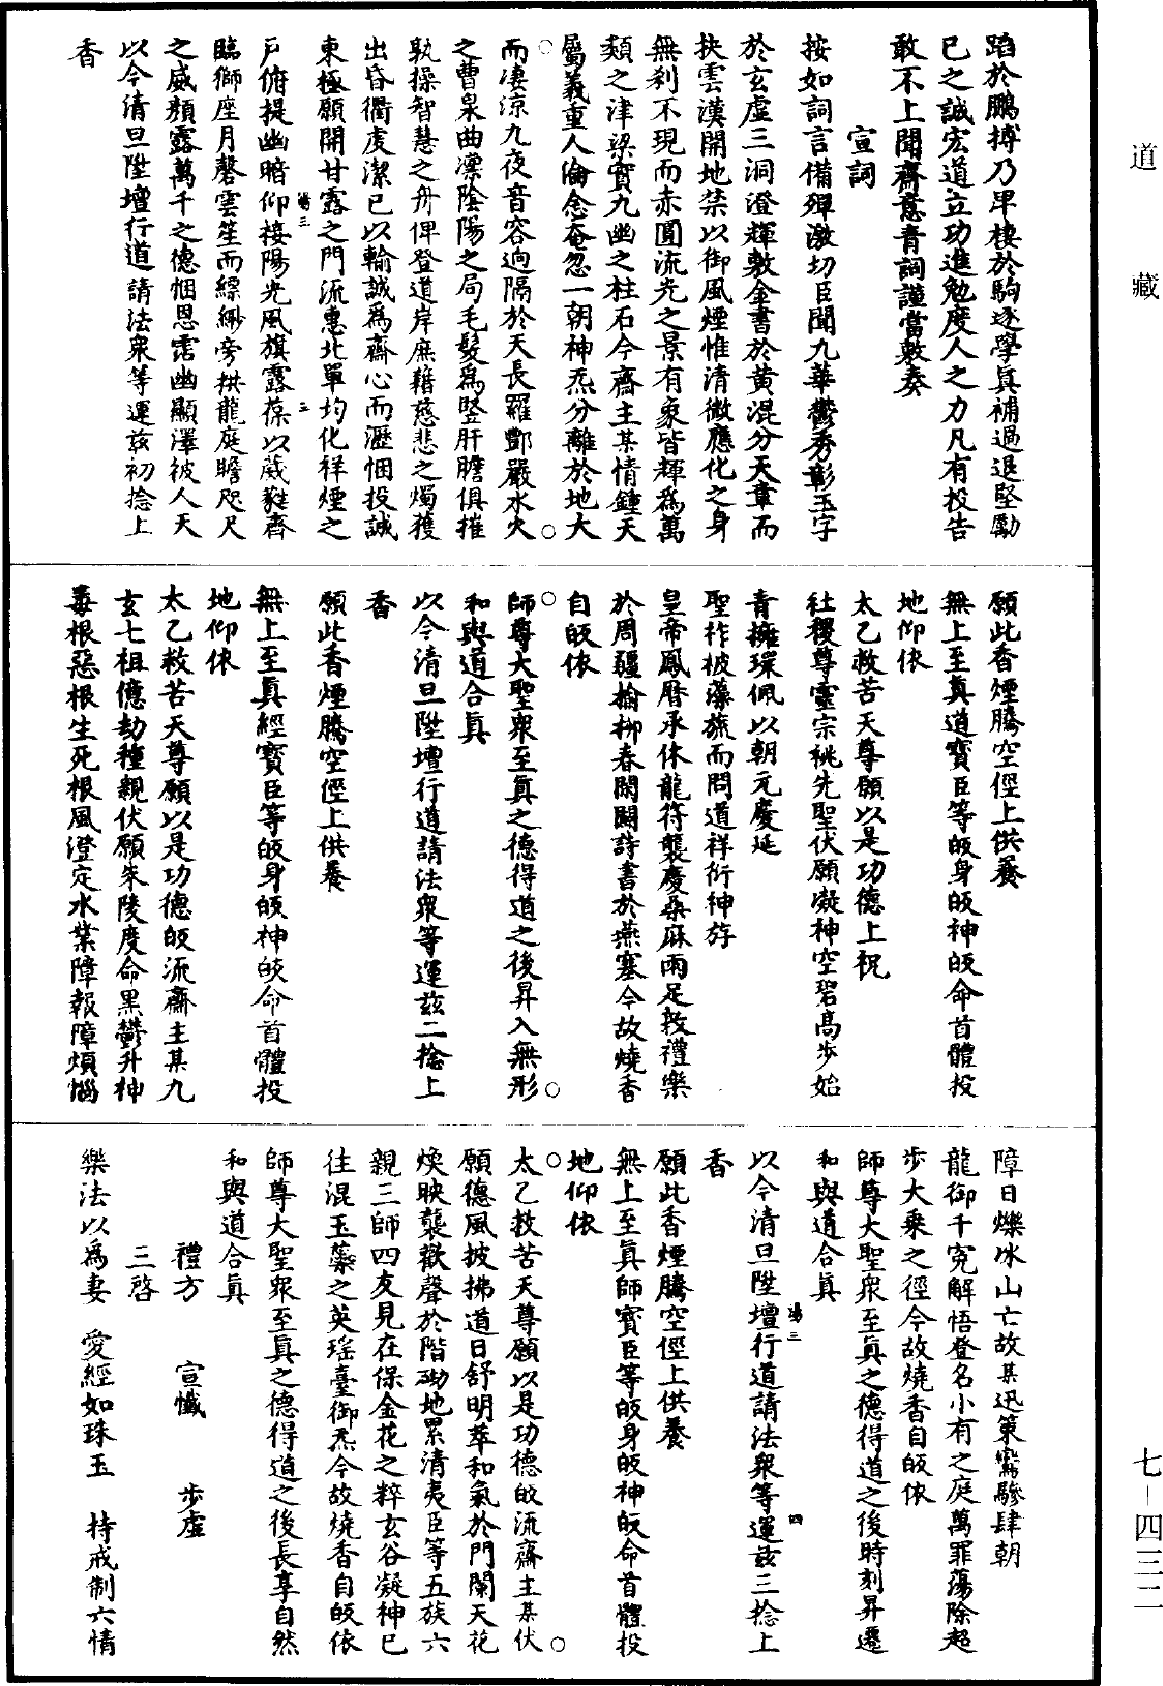 蹈於鵬摶乃卑棲於駒逐學真補過退堅勵
已之誠宏道立功進勉度人之力凡有投告
敢不上聞齋意青詞謹當敷奏
宣詞
按如詞言備殫激切臣聞九華鬱秀彰玉字
於玄虛三洞澄輝敷金書於黃混分天章而
抉雲漢開地禁以御風煙惟清微應化之身
無剎不現而赤圓流光之景有象皆輝為萬
類之津梁實九幽之柱石今齋主某情鍾天
屬義重人倫念奄忽一朝神炁分離於地大
而淒涼九夜音容逈隔於天長羅酆嚴水火
之曹泉曲凜陰陽之局毛髮為竪肝膽俱摧
孰操智慧之舟俾登道岸庶藉慈悲之燭獲
出昏衢虔潔已以輸誠為齋心而瀝悃投誠
東極願開甘露之門流惠北單均化祥煙之
戶俯提幽暗仰接陽光風旗露葆以葳蕤齊
臨獅座月磬雲笙而縹緲旁拱龍庭瞻咫尺
之威顏露萬千之德悃恩霑幽顯澤被人天
以今清旦陞壇行道請法衆等運茲初捻上
香
願此香煙騰空徑上供養
無上至真道寶臣等皈身皈神皈命首體投
地仰依
太乙救苦天尊願以是功德上祝
社稷尊靈宗祧先聖伏願凝神空碧高步始
青擁環佩以朝元慶延
聖祚披藻旒而問道祥衍神游
皇帝鳳曆承休龍符襲慶桑麻雨足敦禮樂
於周疆榆柳春閑闢詩書於燕塞今故燒香
自皈依
師尊大聖衆至真之德得道之後昇入無形
和與道合真
以今清旦陞壇行道請法衆等運茲二捻上
香
願此香煙騰空徑上供養
無上至真經寶臣等皈身皈神皈命首體投
地仰依
太乙救苦天尊願以是功德皈流齋主某九
玄七祖億劫種親伏願朱陵度命黑鬱升神
毒根惡根生死根風澄定水業障報障煩惱
障日爍冰山亡故某迅策鸞驂肆朝
龍御千冤解悟登名小有之庭萬罪蕩除超
步大乘之徑今故燒香自皈依
師尊大聖衆至真之德得道之後時刻昇遷
和與道合真
以今清旦陞壇行道請法衆等運茲三捻上
香
願此香煙騰空徑上供養
無上至真師寶臣等皈身皈神皈命首體投
地仰依
太乙救苦天尊願以是功德皈流齋主某伏
願德風披拂道日舒明萃和氣於門闌天花
煥映襲歡聲於階砌地累清夷臣等五族六
親三師四友見在保金花之粹玄谷凝神已
往混玉蘂之英瑶臺御炁今故燒香自皈依
師尊大聖衆至真之德得道之後長享自然
和與道合真
禮方　宣懺　步虛
三啓
樂法以為妻　愛經如珠玉　持戒制六情
道藏
七—四三二